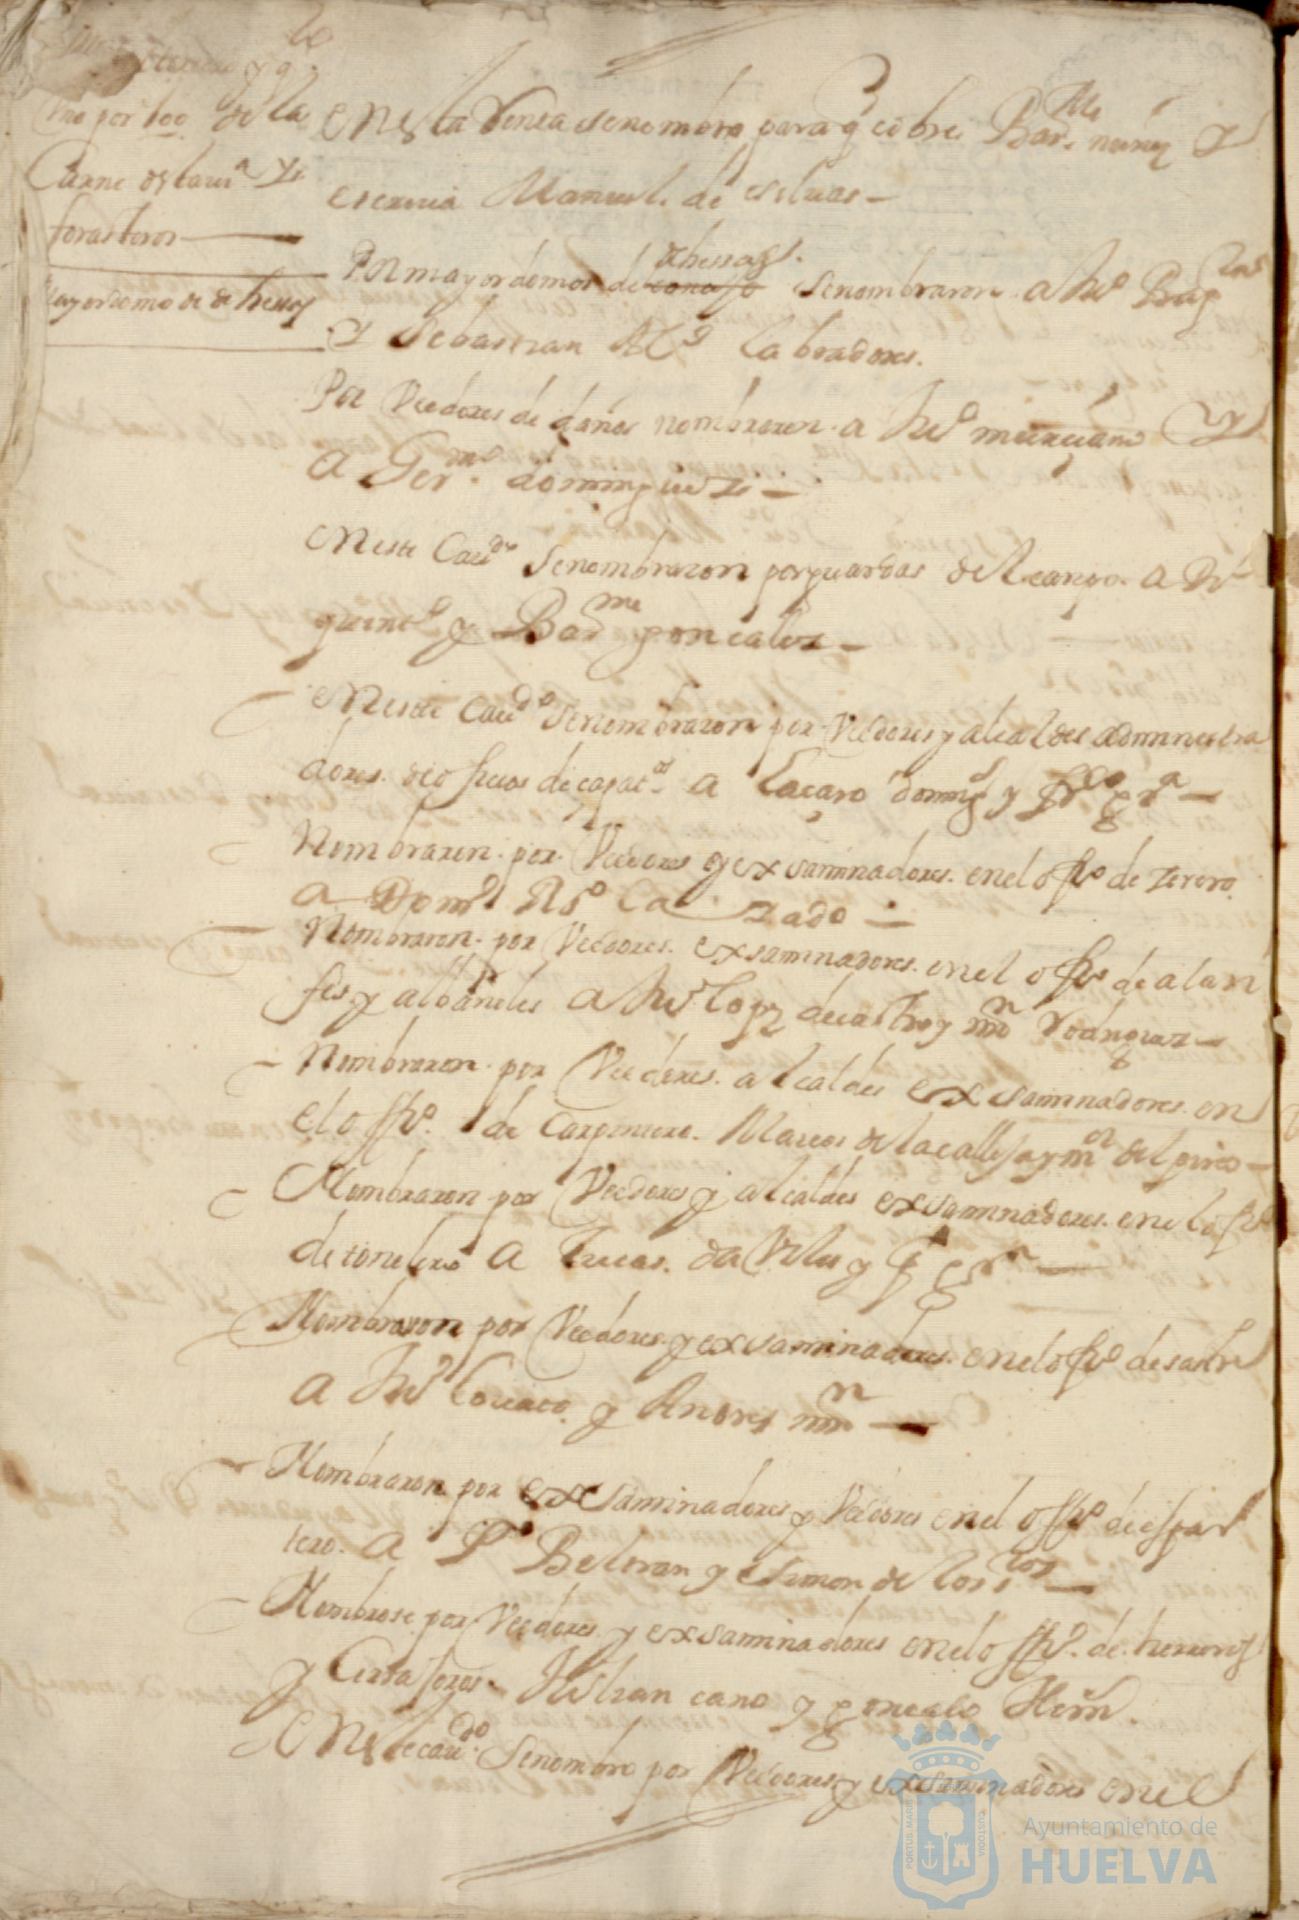 Uno por 100 de la
Carne de la Vi.ª y de
forasteros
Mayordomo de dehessas
En esta Renta se nombro para q cobre Bar.me nuñez y
escriuia Manuel de eseluas
Por mayordomos de conçejo dehessas. se nombraron a Ju.º
y Sebastian labradores.
Por Veedores de daños nombraron a Ju.º murciano y
a Ger.mo dominguez
En este Cau.do se nombraron por guardas del campo. a
y Bar.me gonçales
En este Cau.do se nombraron por Veedores y alcaldes administra
dores de offiçios de çapat.os a Laçaro doming.s y Fr.co gr.a
Nombraron por Veedores y exsaminadores en el off.º de
a Dom.º Al.º Calzado
Nombraron por Veedores exsaminadores en el off.º de alari
fes y albañeles a Ju.º lopez de castro y mrn Rodriguez
Nombraron por Veedores alcaldes exsaminadores en
el off.º de Carpintero. Marcos de la calleja y mrn del pino
Nombraron por Veedores y alcaldes exsaminadores en el off.º
de tonelero a Lucas. y
Nombraron por Veedores y exsaminadores en el off.º de sastre
a Ju.º Louato y Andres mrn
Nombraron por exsaminadores y Veedores en el off.º de espar
tero. a P.º Beltran y Simon de los
Nombrose por Veedores y exsaminadores en el off.º de herreros
y Cerrajeros. cano y gonçalo Hern.
En este cau.do Se nombro por Veedores y exsaminadores en el
PORTUS MARIS
CUSTODIA
Ayuntamiento de
HUELVA